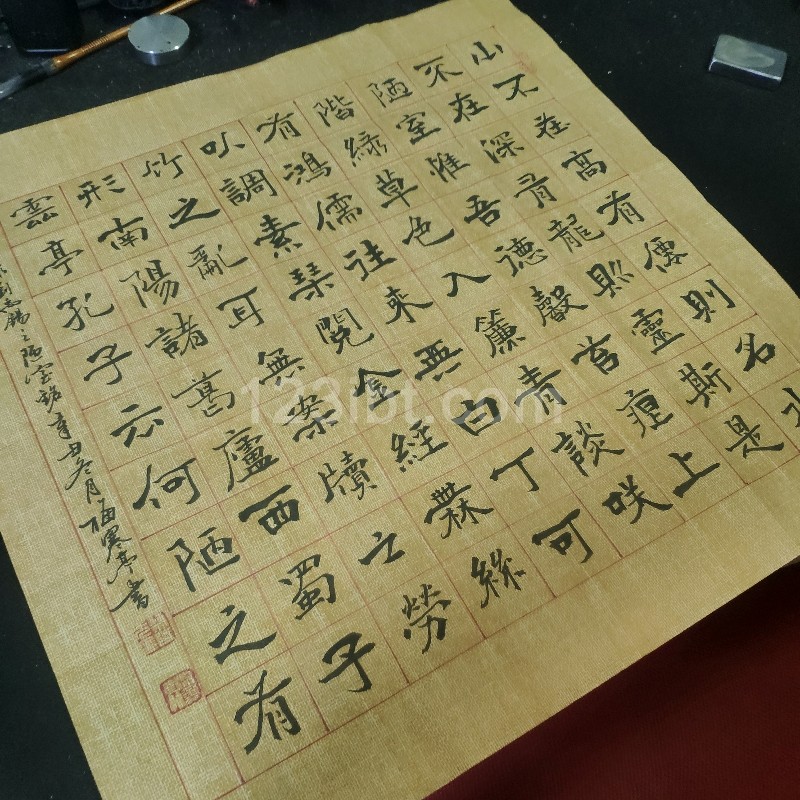 山不在高有僊則名水
不在深有龍則靈斯是
陋室惟吾德馨苔痕上
階綠草色入簾青談咲
有鴻儒往來無白丁可
以調素琴閱金經無絲
竹之亂耳無案牘之勞
形南陽諸葛廬西蜀子
雲亭孔子云何陋之有
劉禹錫之陋室銘辛丑冬月栖寒亭書
123lbt.com